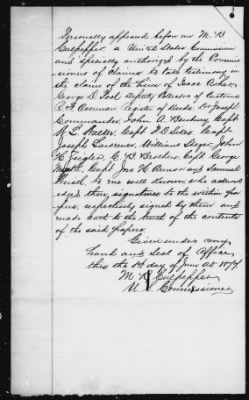 Personally appeared before me M. B
Culpepper, a United States Commissioner
and specially authorized by the Commis
sioners of Claims to take testimony in
the claim of the heirs of Isaac Baker,
George D. Pool Deputy Collector of Customs
Overman Register of Deeds Dr Joseph
Commander, John A. Banbury, Capt.
Capt.
Joseph Lawrence, William Seeger, John
H. Zeigler, C. B. Brothers, Capt George
Capt Jno H. and Samuel
to me well known who acknowl
edged their signatures to the within pa
pers, respectively signed by them and
made oath to the truth of the contents
of the said papers.
Given under my
hand and seal of Office
this the 1st day of June AD
M. B. Culpepper
U. S. Commissioner